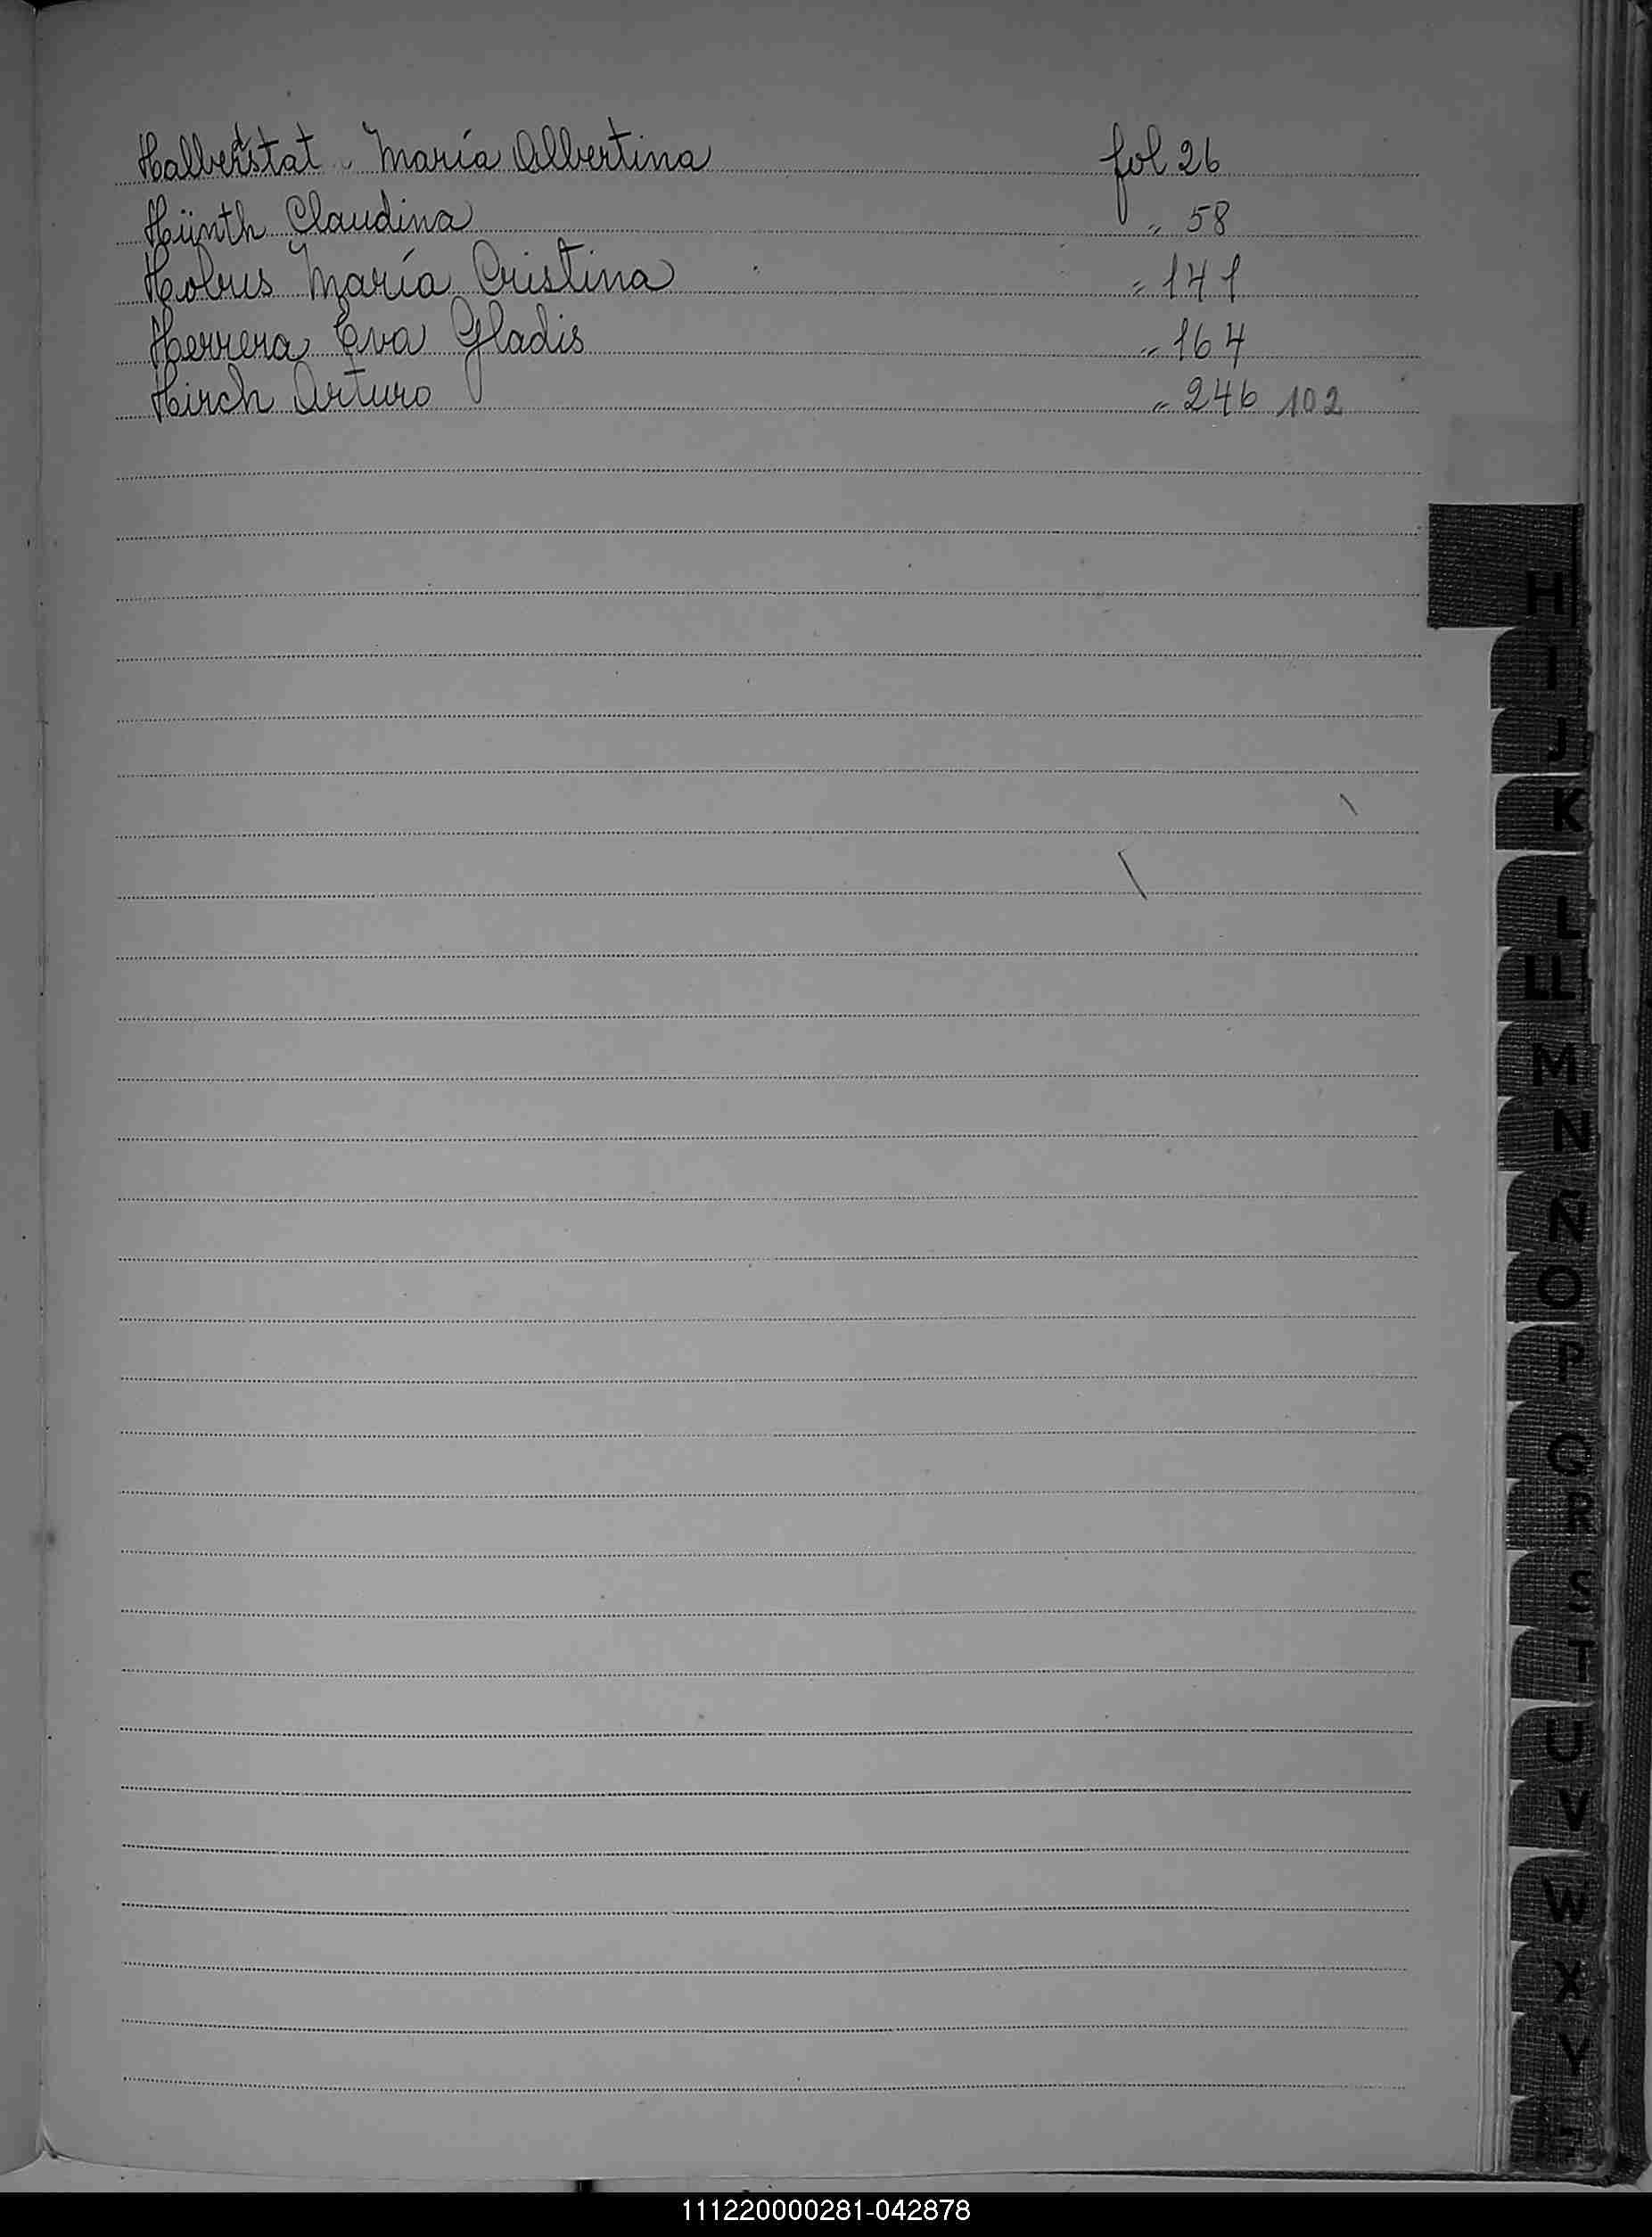 Halberstat María Albertina fol 26
Hünth Claudina " 58
Hobus María Cristina " 141
Herrera Eva Gladis " 164
Hirch Arturo " 246 102
H
I
J
K
L
LL
M
N
Ñ
O
P
Q
R
S
T
U
V
W
X
Y
111220000281-042878